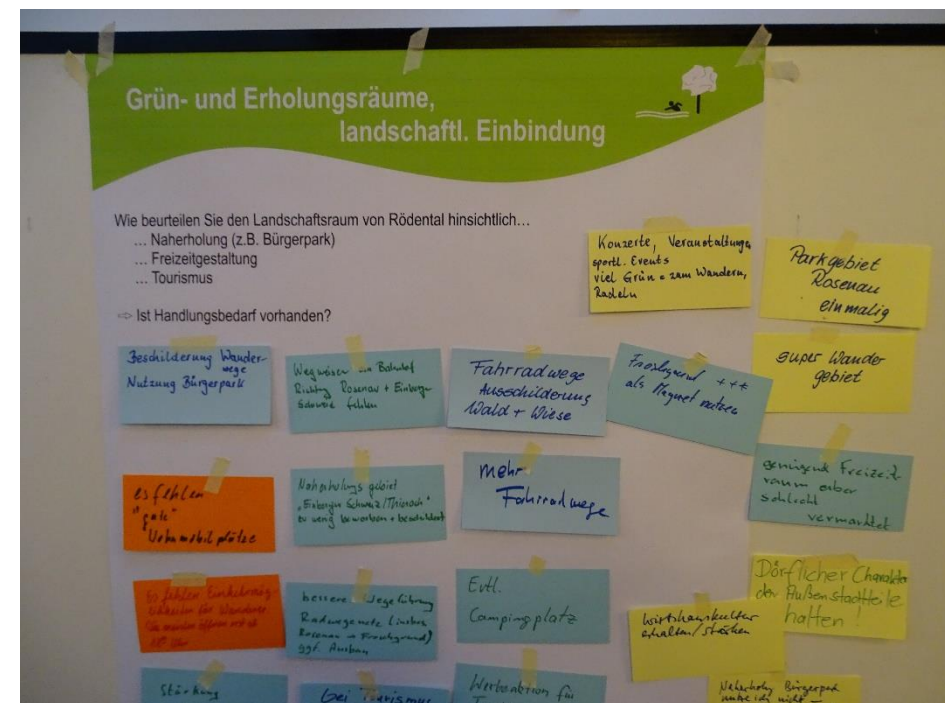 Grün- und Erholungsräume,
landschaftl. Einbindung
Wie beurteilen Sie den Landschaftsraum von Rödental hinsichtlich…
… Naherholung (z.B. Bürgerpark)
… Freizeitgestaltung
… Tourismus
⇨ Ist Handlungsbedarf vorhanden?
Konzerte, Veranstaltungen
sportl. Events
viel Grün = zum Wandern,
Radeln
Parkgebiet
Rosenau
einmalig
Beschilderung Wander-
wege
Nutzung Bürgerpark
Wegweiser am Bahnhof
Richtung Rosenau + Einberger
Schweiz fehlen
Fahrradwege
Ausschilderung
Wald + Wiese
+++
als Magnet nutzen
super Wander
gebiet
es fehlen
"gute"
Wohnmobilplätze
Naherholungsgebiet
zu wenig beworben + beschildert
mehr
Fahrradwege
genügend Freizeit
raum aber
schlecht
vermarktet
es fehlen Einkehrmög
für Wanderer
bessere Wegeführung
Radwegenetz
Rosenau → Froschgrund)
ggf. Ausbau
Evtl.
Campingplatz
wirtshauskultur
erhalten/stärken
Dörflicher Charakter
der Außenstadtteile
halten!
Stärkung
bei Tourismus
Werbeaktion für
Naherholg Bürgerpark